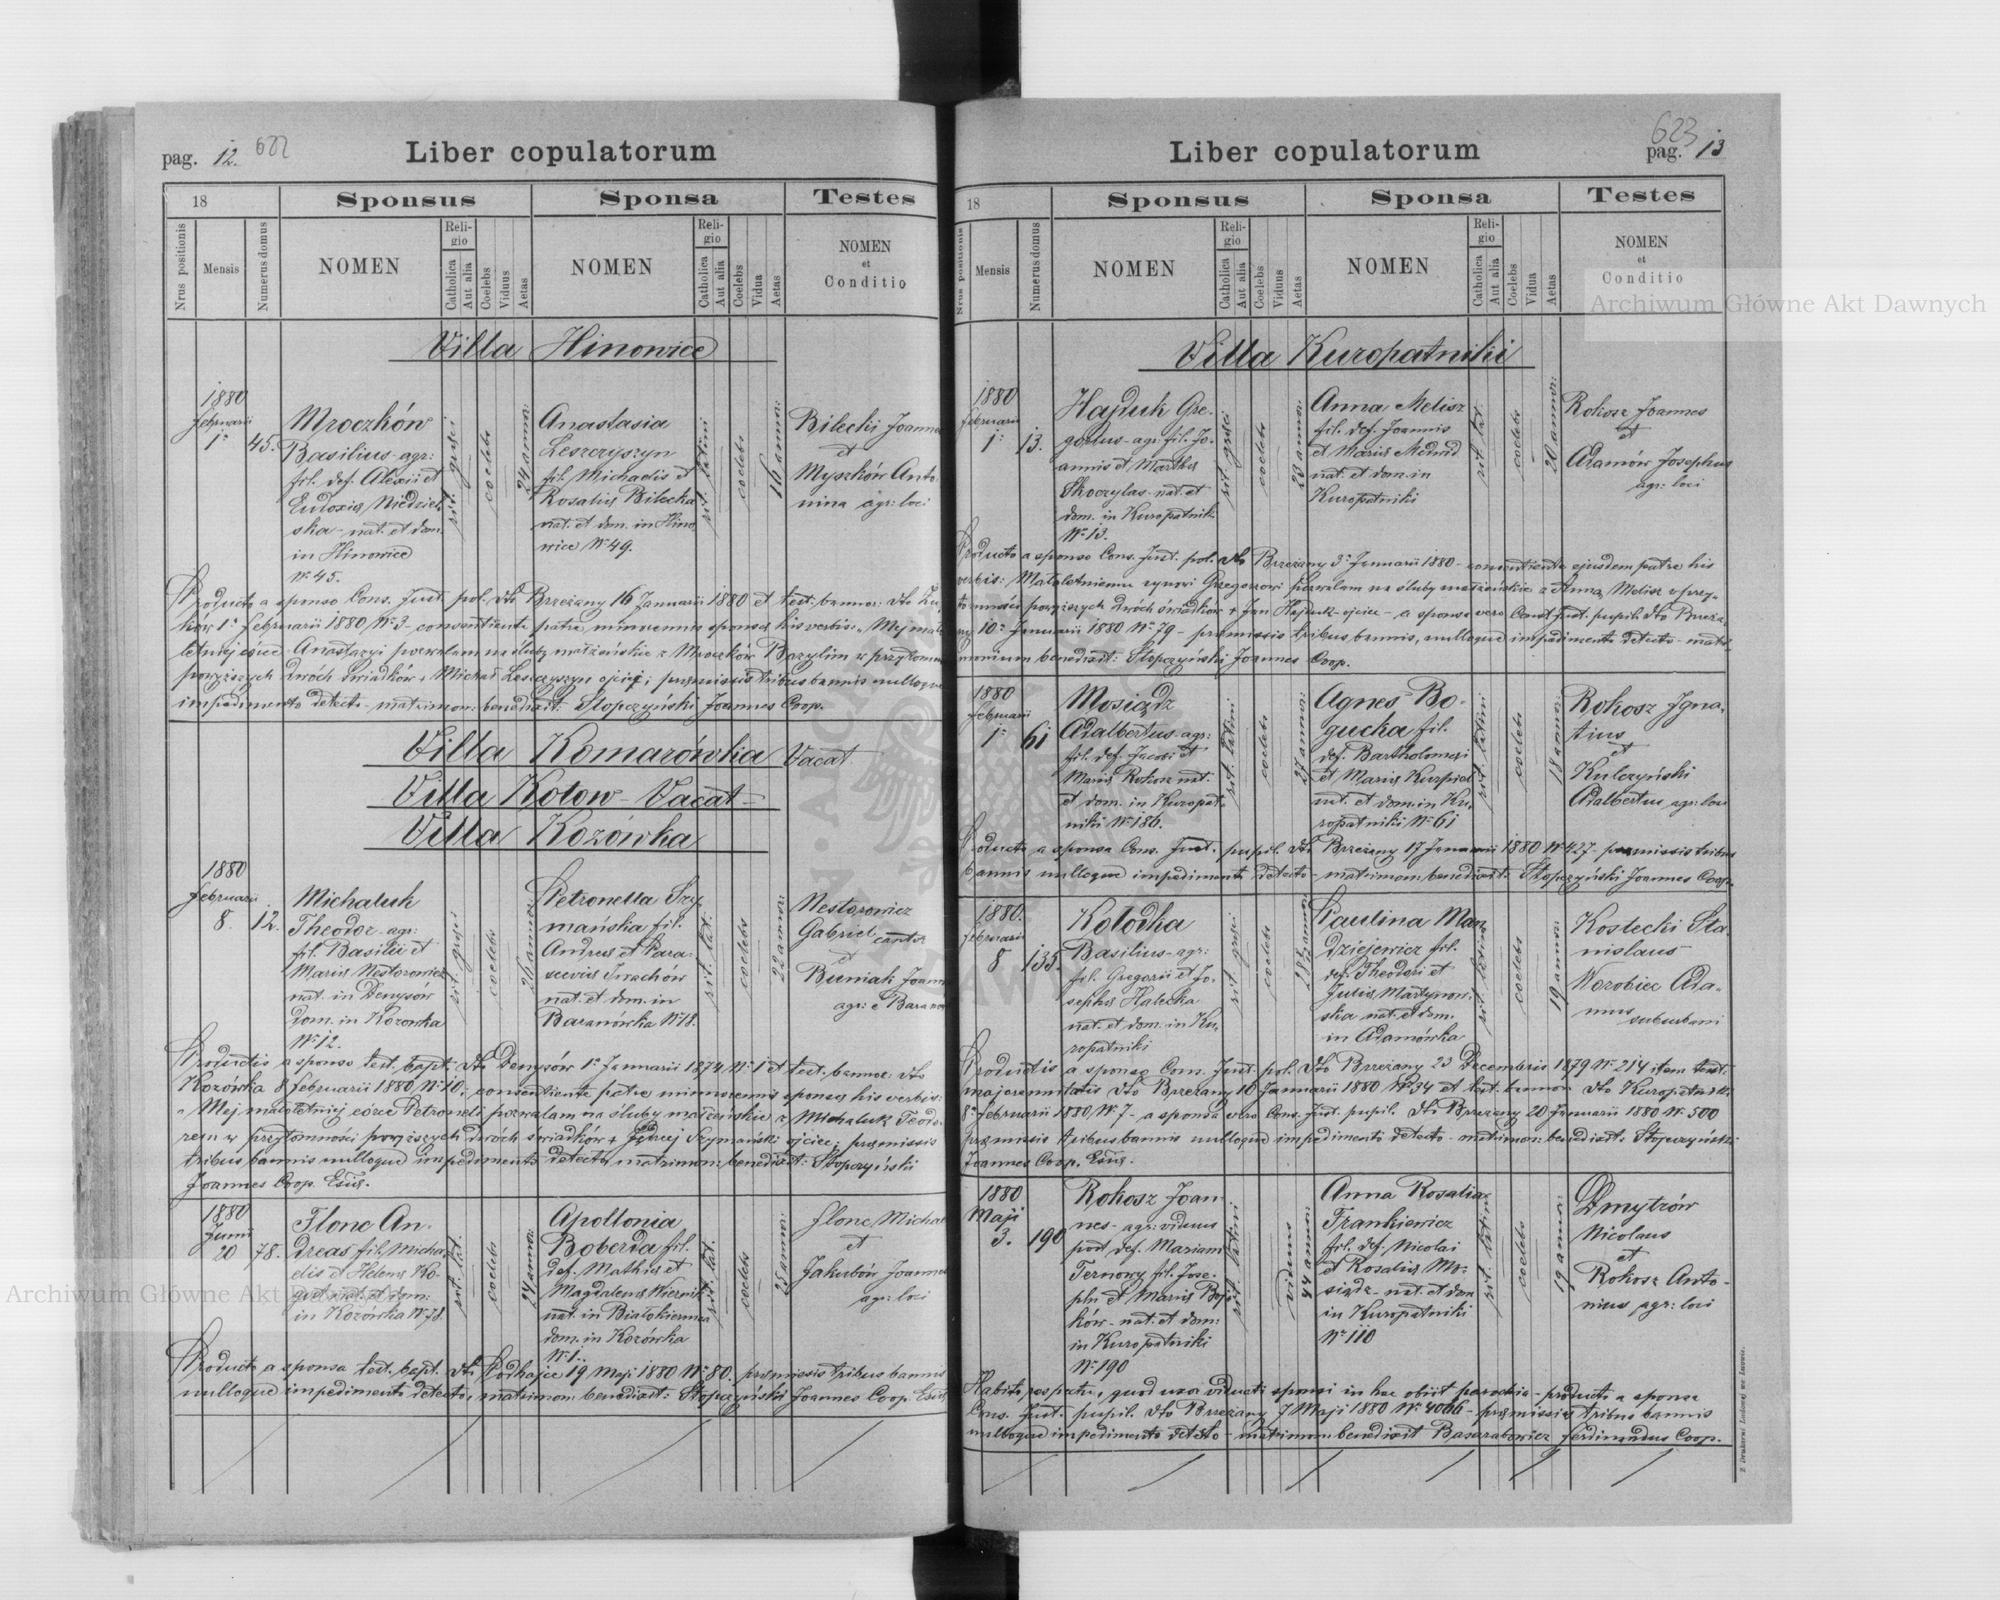 pag. 12. 622
Liber copulatorum
18
Sponsus
Sponsa
Testes
Nrus positionis
Mensis
Numerus domus
NOMEN
Religio
Catholica
Aut alia
Coelebs
Viduus
Aetas
NOMEN
Religio
Catholica
Aut alia
Coelebs
Vidua
Aetas
NOMEN
et
Conditio
Villa Hinowice
1880
februarii
1ª
45.
Mroczków
Basilius agr:
fil. def. Alexii et
Eudoxiæ Niedziel
ska - nat. et dom.
in Hinowice
Nº 45.
rit. græci
coelebs
24 annor:
Anastasia
Leszczyszyn
fil. Michaelis et
Rosaliæ Bilecka
nat. et dom. in Hino
wice Nº 49.
rit. latini
coelebs
16 annor:
Bilecki Joannes
et
Myszków Anto
nina agr: loci
Producto a sponso Cons. Just. pol. dto Brzeżany 16 Januarii 1880 et test. bannor: dto
1ª februarii 1880 Nº 3 - consentiente patre minorennis sponsæ his verbis: „Mej mało
letniej córce Anastazyi pozwalam na śluby małżeńskie z Mroczków Bazylim w przytomn
powyższych dwóch świadków + Michał Leszczyszyn ojciec; præmissis tribus bannis nulloque
impedimento detecto - matrimon: benedixit: Stopczyński Joannes Coop.
Villa Komarówka Vacat
Villa Kotow - Vacat -
Villa Kozówka
1880
februarii
8.
12.
Michaluk
Theodor - agr:
fil. Basilii et
Mariæ Nestorowicz
nat. in Denysów
dom. in Kozowka
Nº 12.
rit. græci
coelebs
26 annor
Petronella Szy
mańska fil.
Andreæ et Para
sceviæ Iwachów
nat. et dom. in
Baranówka Nº 18.
rit. lat.
coelebs
22 annor:
Nestorowicz
Gabriel cantor
et
Buniak Joann
agr: e Barano
Productis a sponso test. bapt. dto Denysów 1ª Januarii 1874 Nº 1 et test. bannor. dto
Kozówka 8 februarii 1880 Nº 10; consentiente patre minorennis sponsæ his verbis:
„Mej małoletniej córce Petroneli pozwalam na śluby małżeńskie z Michaluk Teodo-
rem w przytomności powyższych dwóch świadków + Jędrzej Szymański ojciec; præmissis
tribus bannis nulloque impedimento detecto, matrimon: benedixit: Stopczyński
Joannes Coop. Exius.
1880
Junii
20
78.
Ilonc An-
dreas fil. Micha
elis et Helenæ Ko-
nat. et dom:
in Kozówka Nº 78.
rit. lat.
coelebs
24 annor:
Apollonia
Boberda fil.
def. Mathiæ et
Magdalenæ
nat. in
dom. in Kozówka
Nº 1.
rit. lat.
coelebs
25 annor:
Ilonc Michae
et
Jakubów Joannes
agr: loci
Producto a sponsa test. bapt. dto Podhajce 19 Maji 1880 Nº 80. præmissis tribus bannis
nulloque impedimento detecto, matrimon: benedixit: Stopczyński Joannes Coop. Exius
Liber copulatorum
623
pag. 13
18
Sponsus
Sponsa
Testes
Nrus positionis
Mensis
Numerus domus
NOMEN
Religio
Catholica
Aut alia
Coelebs
Viduus
Aetas
NOMEN
Religio
Catholica
Aut alia
Coelebs
Vidua
Aetas
NOMEN
et
Conditio
Villa Kuropatniki
1880
februarii
1ª
13.
Hajduk Gre-
gorius - agr: fil. Jo-
annis et Marthæ
Skoczylas - nat. et
dom. in Kuropatnik
Nº 13.
rit. græci
coelebs
23 annor:
Anna Melisz
fil. def. Joannis
et Mariæ Medwid
nat. et dom. in
Kuropatniki
rit. lat.
coelebs
20 annor:
Rokosz Joannes
et
Adamów Josephus
agr: loci
Producto a sponso Cons. Just. pol. dto Brzeżany 3ª Januarii 1880 - consentiente ejusdem patre his
verbis: Małoletniemu synowi Grzegorzowi pozwalam na śluby małżeńskie z Anną Melisz w przy-
tomności powyższych dwóch świadków + Jan Hajduk - ojciec - a sponsa vero Cons. Just. pupil. dto Brzeża
ny 10ª Januarii 1880 Nº 79 - præmissis tribus bannis, nulloque impedimento detecto - matri
monium benedixit: Stopczyński Joannes Coop.
1880
februarii
1ª
61
Mosiądz
Adalbertus - agr:
fil. def. Jacobi et
Mariæ Rokosz nat.
et dom. in Kuropat-
niki Nº 186.
rit. latini
coelebs
27 annor:
Agnes Bo-
gucka fil.
def. Bartholomæi
et Mariæ Kurpiel
nat. et dom. in Ku-
ropatniki Nº 61
rit. latini
coelebs
18 annor:
Rokosz Igna-
tius
et
Kulczyński
Adalbertus agr: loci
Producto a sponsa Cons. Just. pupil. dto Brzeżany 17 Januarii 1880 Nº 427 - præmissis tribus
bannis nulloque impedimento detecto - matrimon: benedixit: Stopczyński Joannes Coop.
1880.
februarii
8
135.
Kołodka
Basilius - agr:
fil. Gregorii et Jo-
sephæ Halecka
nat. et dom. in Ku-
ropatniki
rit. græci
coelebs
annor:
Paulina Man
dziejewicz fil.
def. Theodori et
Juliæ Martynow-
ska nat. et dom.
in Adamówka
rit. latini
coelebs
19 annor:
Kostecki Sta-
nislaus
Worobiec Ada-
mus
suburbani
Productis a sponso Cons. Just. pol. dto Brzeżany 23 Decembris 1879 Nº 214 item test.
majorennitatis dto Brzeżany 10 Januarii 1880 Nº 34 et test. bannor. dto Kuropatniki
8ª februarii 1880 Nº 7 - a sponsa vero Cons. Just. pupil. dto Brzeżany 20 Januarii 1880 Nº 500
præmissis tribus bannis nulloque impedimento detecto - matrimon: benedixit. Stopczyński
Joannes Coop. Exius.
1880
Maji
3.
190
Rokosz Joan-
nes - agr: viduus
post def. Mariam
Ternowy fil. Jose-
phi et Mariæ Boj-
ków - nat. et dom:
in Kuropatniki
Nº 190
rit. latini
viduus
44 annor:
Anna Rosalia
Frankiewicz
fil. def. Nicolai
et Rosaliæ Mo-
siądz - nat. et dom
in Kuropatniki
Nº 110
rit. latini
coelebs
19 annor:
Dmytrów
Nicolaus
et
Rokosz Anto-
nius agr: loci
Habito respectu, quod uxor viduati sponsi in hac obiit parochia - producto a sponsa
Cons. Just. pupil. dto Brzeżany 7 Maji 1880 Nº 4066 - præmissis tribus bannis
nulloque impedimento detecto - matrimon: benedixit Basarabowicz Ferdinandus Coop.
Z Drukarni Ludowej we Lwowie.
Archiwum Główne Akt Dawnych
Archiwum Główne Akt Dawnych